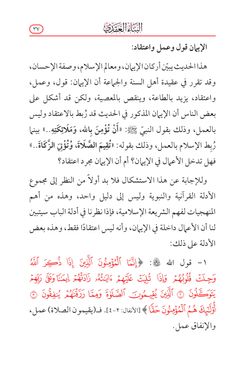 البناء العقدي
٣٧
الإيمان قول وعمل واعتقاد:
هذا الحديث يبيّن أركان الإيمان، ومعالم الإسلام، وصفة الإحسان،
وقد تقرر في عقيدة أهل السنة والجماعة أن الإيمان: قول، وعمل،
واعتقاد، يزيد بالطاعة، وينقص بالمعصية، ولكن قد أشكل على
بعض الناس أن الإيمان المذكور في الحديث قد رُبط بالاعتقاد وليس
بالعمل، وذلك بقول النبيّ ﷺ: «أَنْ تُؤْمِنَ بِالله، وَمَلَائِكَتِهِ ..» بينما
رُبط الإسلام بالعمل، وذلك بقوله: «تُقِيمَ الصَّلَاةَ، وَتُؤْتِيَ الزَّكَاةَ..»
فهل تدخل الأعمال في الإيمان؟ أم أن الإيمان مجرد اعتقاد؟
وللإجابة عن هذا الاستشكال فلا بد أولاً من النظر إلى مجموع
الأدلة القرآنية والنبوية وليس إلى دليل واحد، وهذه من أهم
المنهجيات لفهم الشريعة الإسلامية، فإذا نظرنا في أدلة الباب سيتبين
لنا أن الأعمال داخلة في الإيمان، وأنه ليس اعتقادًا فقط، وهذه بعض
الأدلة على ذلك:
١- قول الله ﷻ: ﴿إِنَّمَا ٱلْمُؤْمِنُونَ ٱلَّذِينَ إِذَا ذُكِرَ ٱللَّهُ
وَجِلَتْ قُلُوبُهُمْ وَإِذَا تُلِيَتْ عَلَيْهِمْ ءَايَٰتُهُۥ زَادَتْهُمْ إِيمَٰنًا وَعَلَىٰ رَبِّهِمْ
يَتَوَكَّلُونَ ۝ ٱلَّذِينَ يُقِيمُونَ ٱلصَّلَوٰةَ وَمِمَّا رَزَقْنَٰهُمْ يُنفِقُونَ ۝
أُو۟لَٰٓئِكَ هُمُ ٱلْمُؤْمِنُونَ حَقًّا﴾ [الأنفال: ٢-٤]. فـ(يقيمون الصلاة) عمل،
والإنفاق عمل.